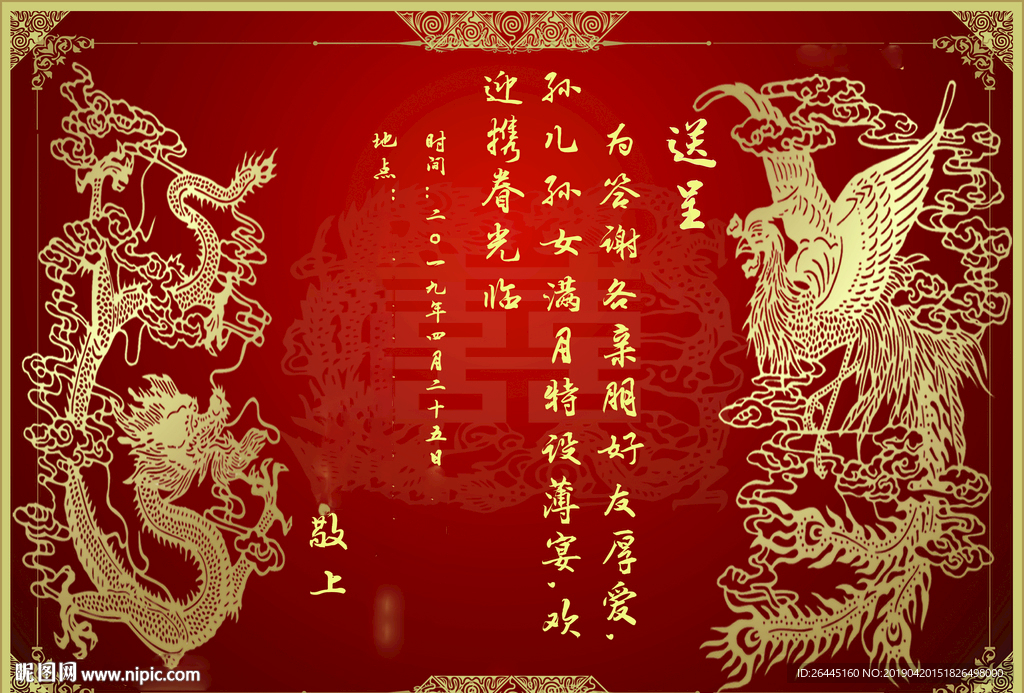 送呈
为答谢各亲朋好友厚爱，
孙儿孙女满月特设薄宴，欢
迎携眷光临
时间：二〇一九年四月二十五日
地点：
敬上
昵图网 www.nipic.com
ID:26445160 NO:20190420151826498000